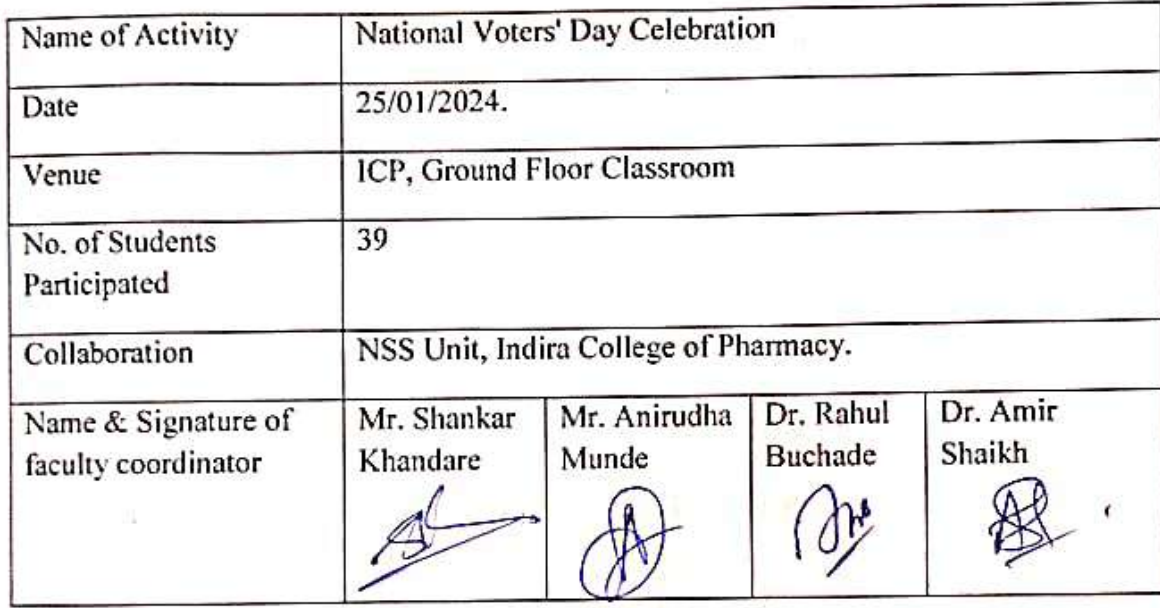 Name of Activity
National Voters' Day Celebration
Date
25/01/2024.
Venue
ICP, Ground Floor Classroom
No. of Students
Participated
39
Collaboration
NSS Unit, Indira College of Pharmacy.
Name & Signature of
faculty coordinator
Mr. Shankar
Khandare
Mr. Anirudha
Munde
Dr. Rahul
Buchade
Dr. Amir
Shaikh